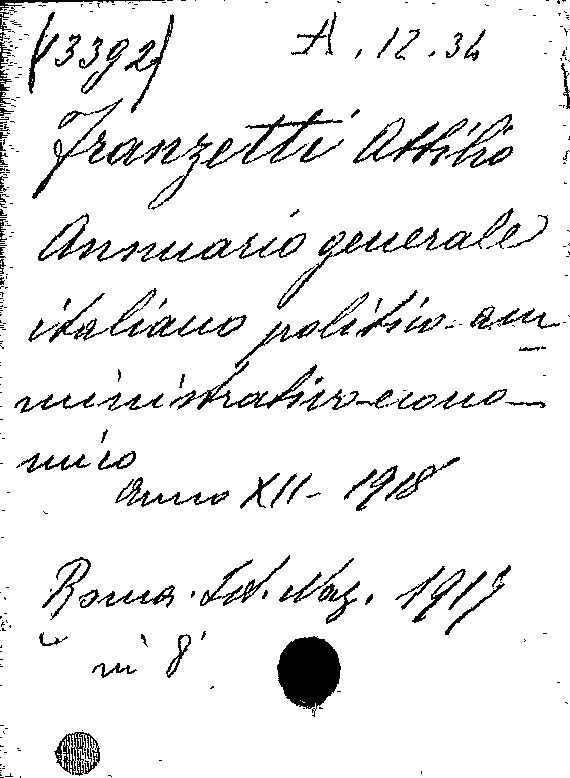 (13392) A.12.34
Franzetti Attilio
Annuario generale
italiano politico-am-
ministrativo-econo-
mico
Anno XII - 1918
Roma. Id. Naz. 1919
in 8°